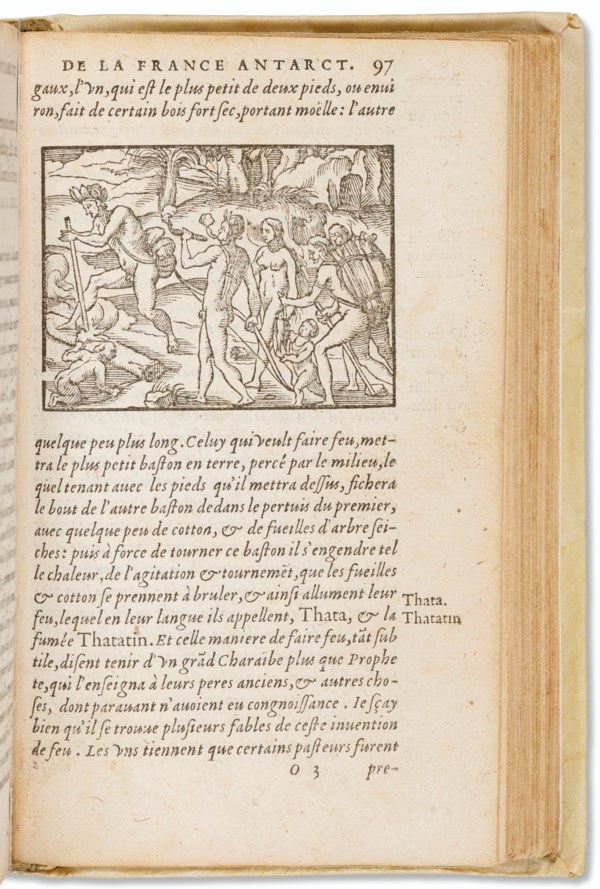 DE LA FRANCE ANTARCT. 97
gaux, l'vn, qui est le plus petit de deux pieds, ou enui
ron, fait de certain bois fort sec, portant moëlle: l'autre
quelque peu plus long. Celuy qui veult faire feu, met-
tra le plus petit baston en terre, percé par le milieu, le
quel tenant auec les pieds qu'il mettra dessus, fichera
le bout de l'autre baston dedans le pertuis du premier,
auec quelque peu de cotton, & de fueilles d'arbre sei-
ches: puis à force de tourner ce baston il s'engendre tel
le chaleur, de l'agitation & tournemēt, que les fueilles
& cotton se prennent à bruler, & ainsi allument leur
feu, lequel en leur langue ils appellent, Thata, & la
fumée Thatatin. Et celle maniere de faire feu, tāt sub
tile, disent tenir d'vn grād Charaïbe plus que Prophe
te, qui l'enseigna à leurs peres anciens, & autres cho-
ses, dont parauant n'auoient eu congnoissance. Ie sçay
bien qu'il se trouue plusieurs fables de ceste inuention
de feu. Les vns tiennent que certains pasteurs furent
O 3 pre-
Thata.
Thatatin